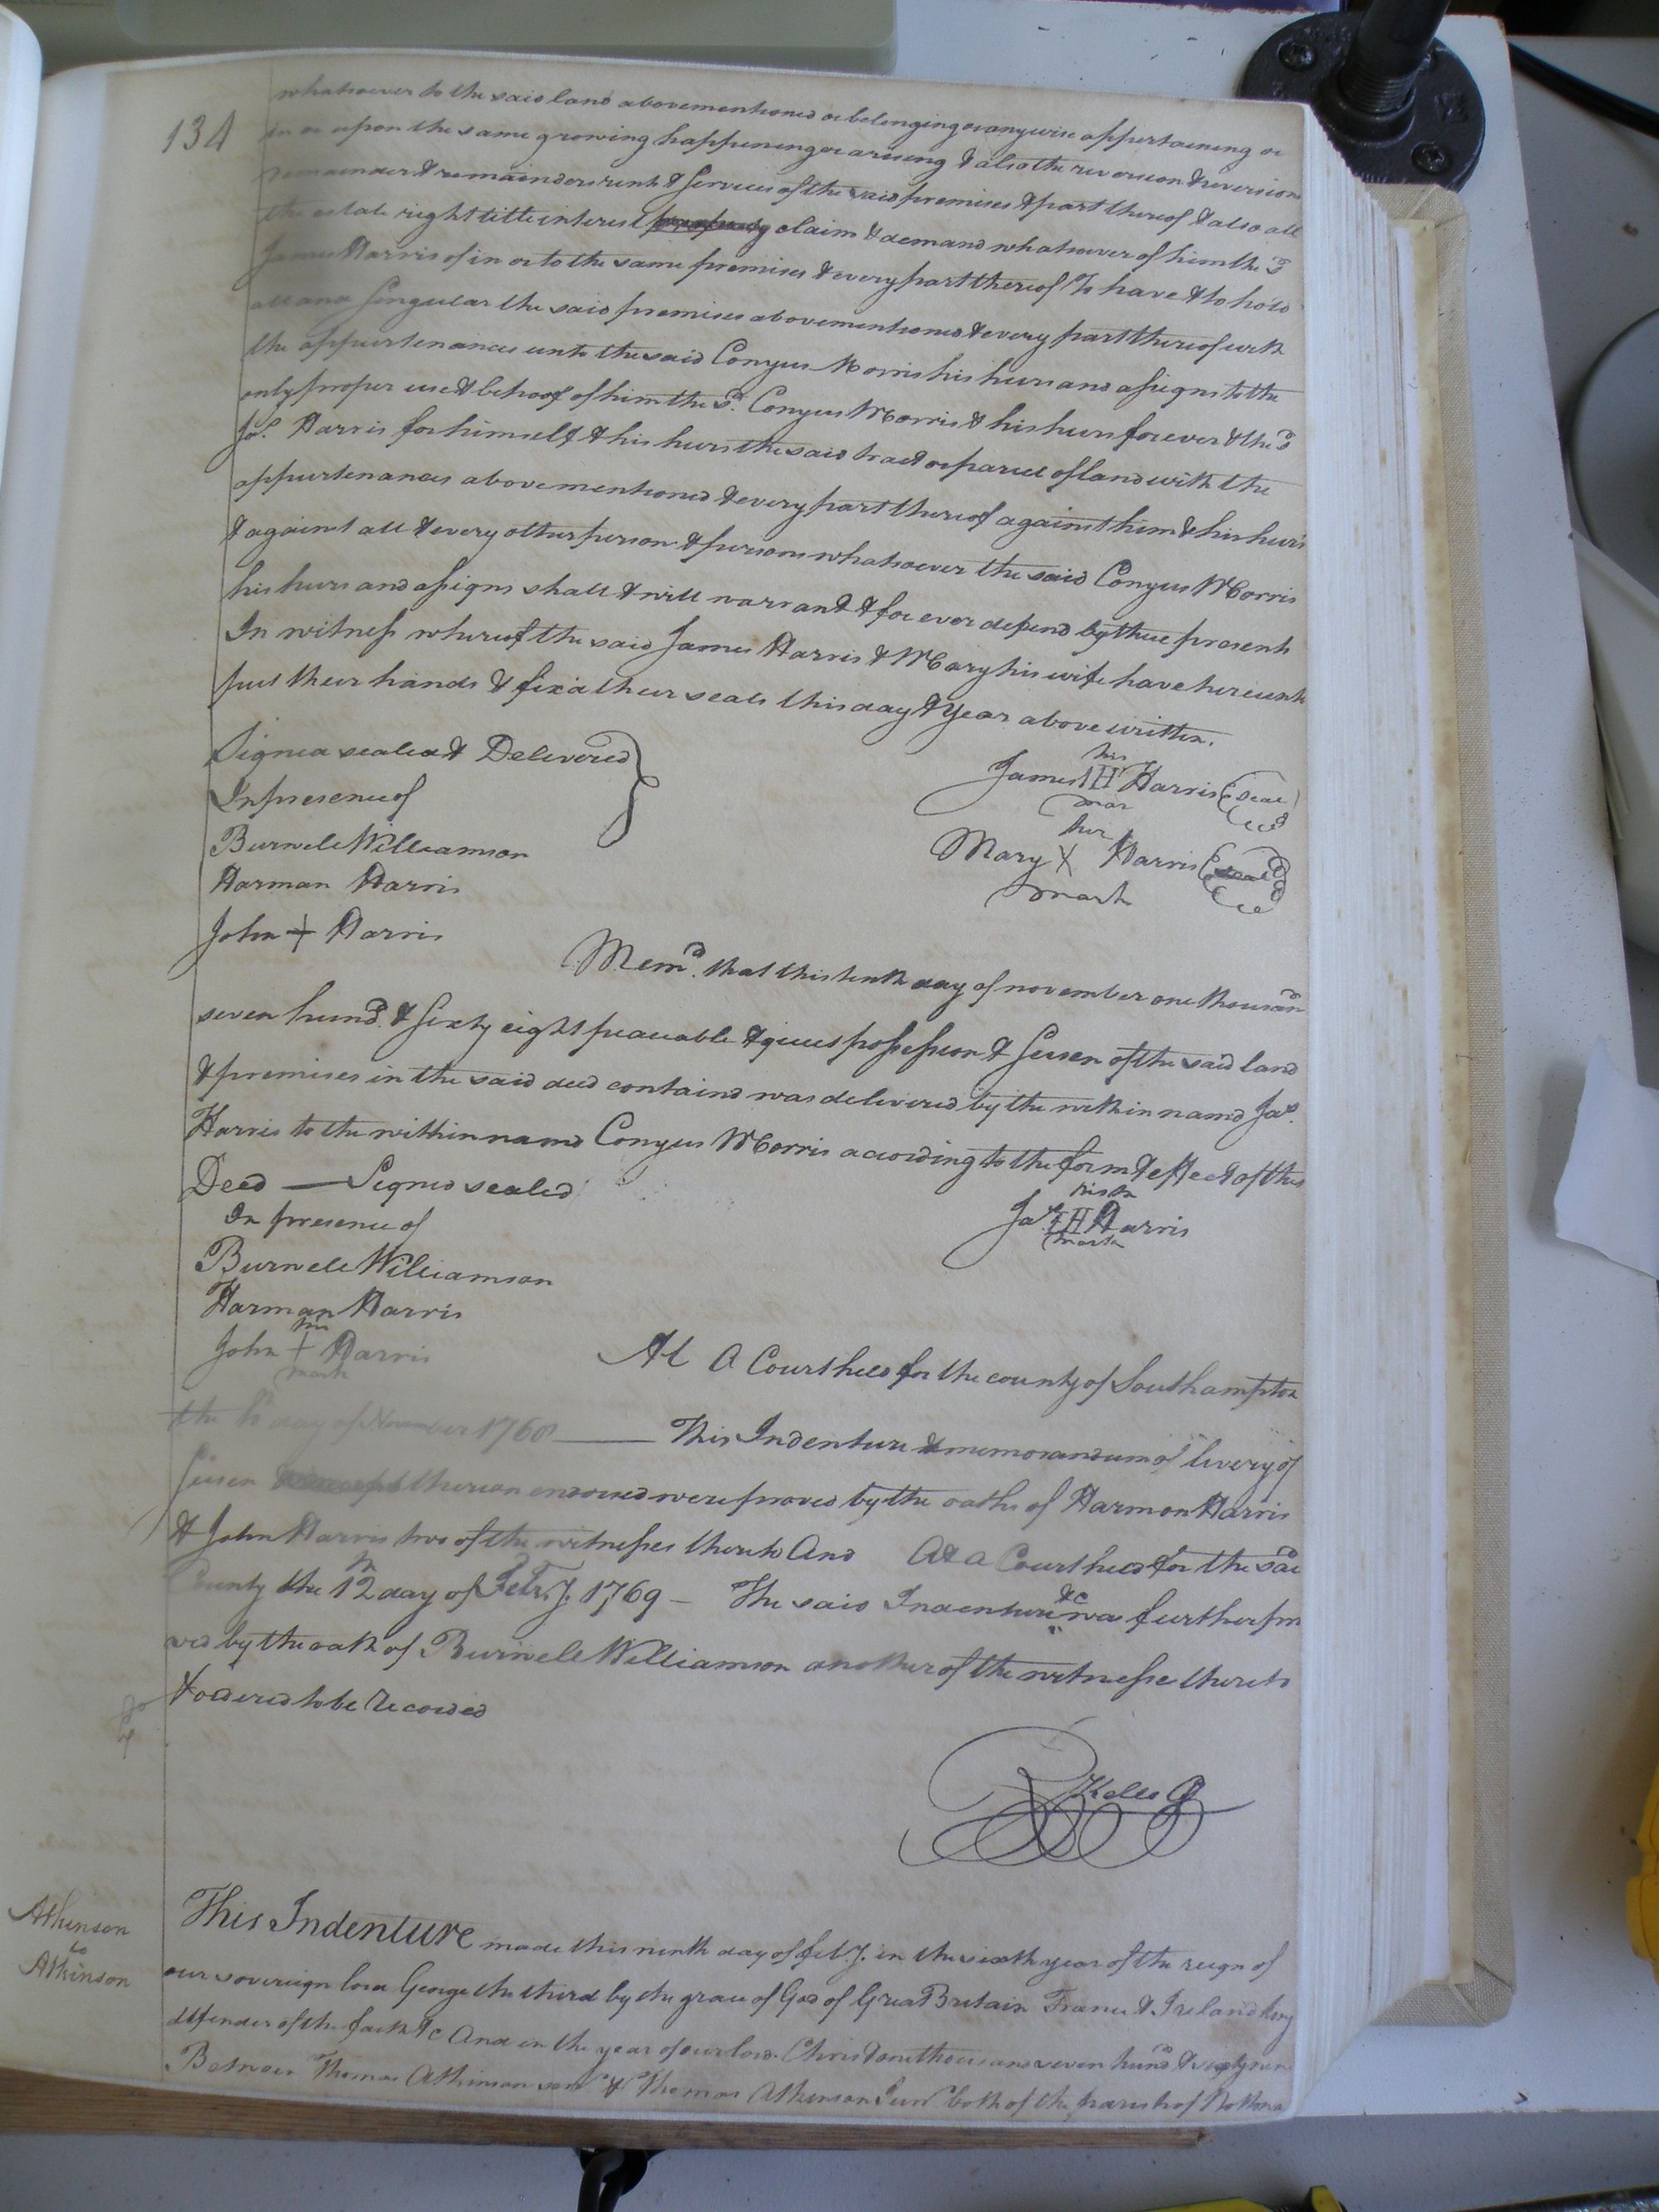 134
whatsoever to the said land abovementioned or belonging or anywise appertaining or
in or upon the same growing happening or arising & also the reversion & reversions
remainder & remainders rents & services of the said premises & part thereof & also all
the estate right title interest claim & demand whatsoever of him the sd
James Harris of in or to the same premises & every part thereof To have & to hold
all and singular the said premises abovementioned & every part thereof with
the appurtenances unto the said Conyus Morris his heirs and assigns to the
only proper use & behoof of him the sd. Conyus Morris & his heirs forever & the sd
Jas. Harris for himself & his heirs the said tract or parcel of land with the
appurtenances abovementioned & every part thereof against him & his heirs
& against all & every other person & persons whatsoever the said Conyus Morris
his heirs and assigns shall & will warrant & for ever defend by these presents
In witness whereof the said James Harris & Mary his wife have hereunto
put their hands & fix'd their seals this day & year above written.
Signed sealed & Delivered
In presence of
Burwell Williamson
Harman Harris
John + Harris
his
James IH Harris (seal)
mar
her
Mary X Harris (seal)
mark
Memd. that this tenth day of november one thousand
seven hund. & sixty eight peaceable & quiet possession & seisen of the said land
& premises in the said deed containd was delivered by the within namd Jas.
Harris to the within namd Conyus Morris according to the form & effect of this
Deed — Signed sealed
In presence of
Burwell Williamson
Harman Harris
his
John + Harris
mark
his
Jas. IH Harris
mark
At a Court held for the county of Southampton
the day of November 1768 — This Indenture & memorandum of livery of
seisen thereon endorsed were proved by the oaths of Harmon Harris
& John Harris two of the witnesses thereto And At a Court held for the said
County the 12th day of Febry. 1769 — The said Indenture &c was further pro
ved by the oath of Burwell Williamson another of the witnesse thereto
& ordered to be Recorded
R Kello C
Atkinson
to
Atkinson
This Indenture made this ninth day of feby. in the sixth year of the reign of
our sovereign lord George the third by the grace of God of Great Britain France & Ireland king
defender of the faith &c And in the year of our lord Christ one thousand seven hund & sixty nine
Between Thomas Atkinson senr & Thomas Atkinson Junr both of the parish of Nottoway